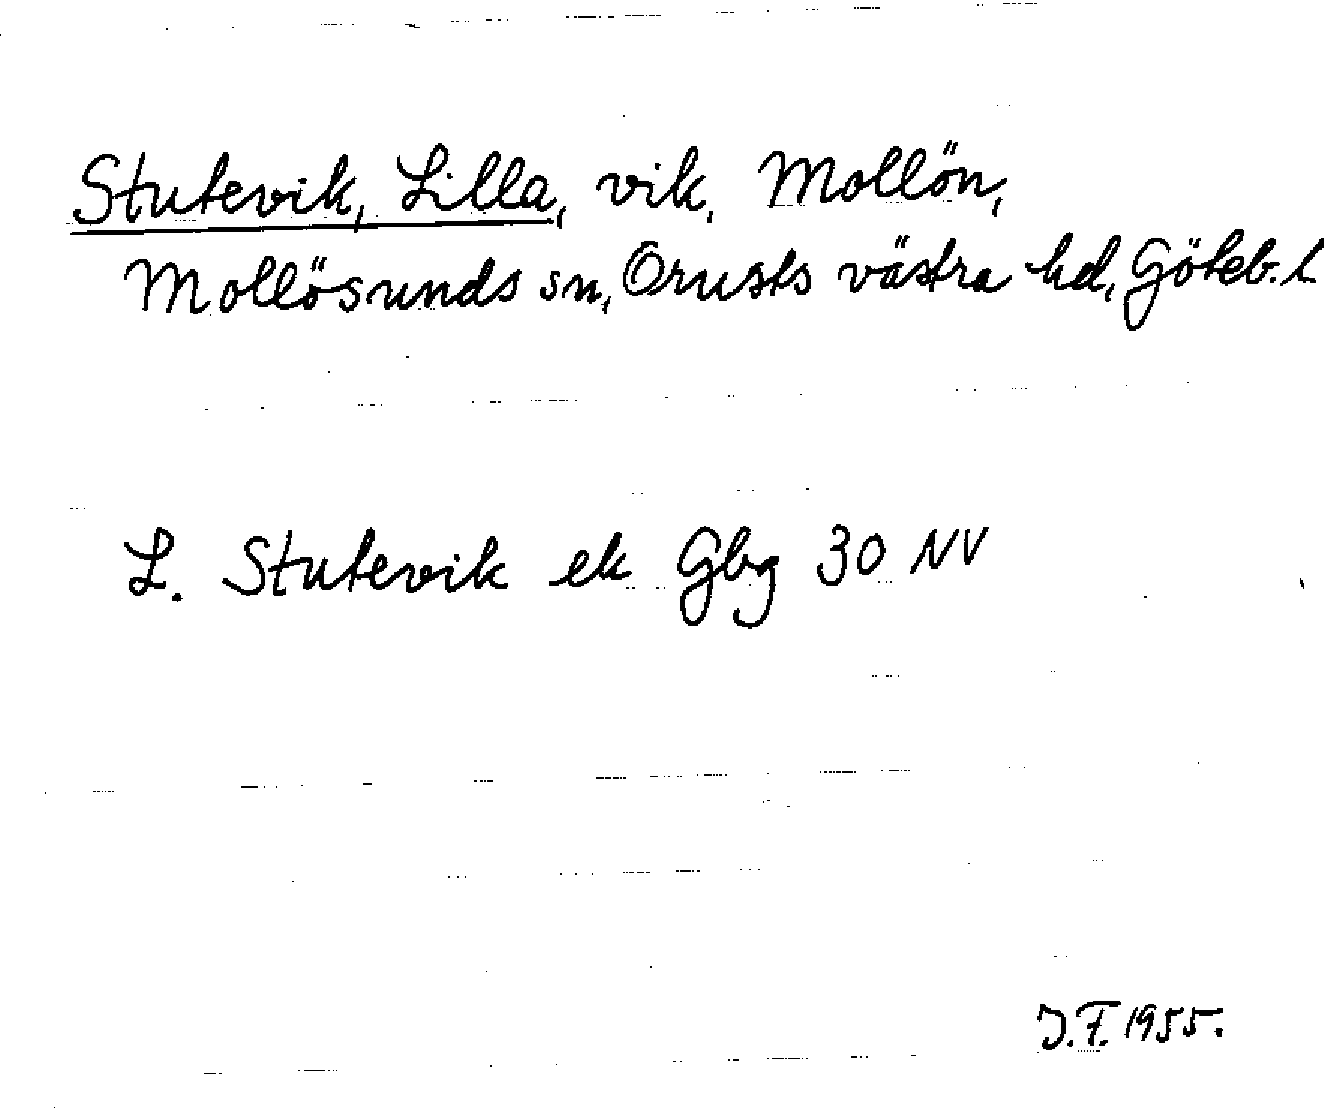 Stutevik, Lilla, vik, Mollön,
Mollösunds sn, Orusts västra hd, Göteb. l.
L. Stutevik ek Gbg 30 NV
J.F. 1955.